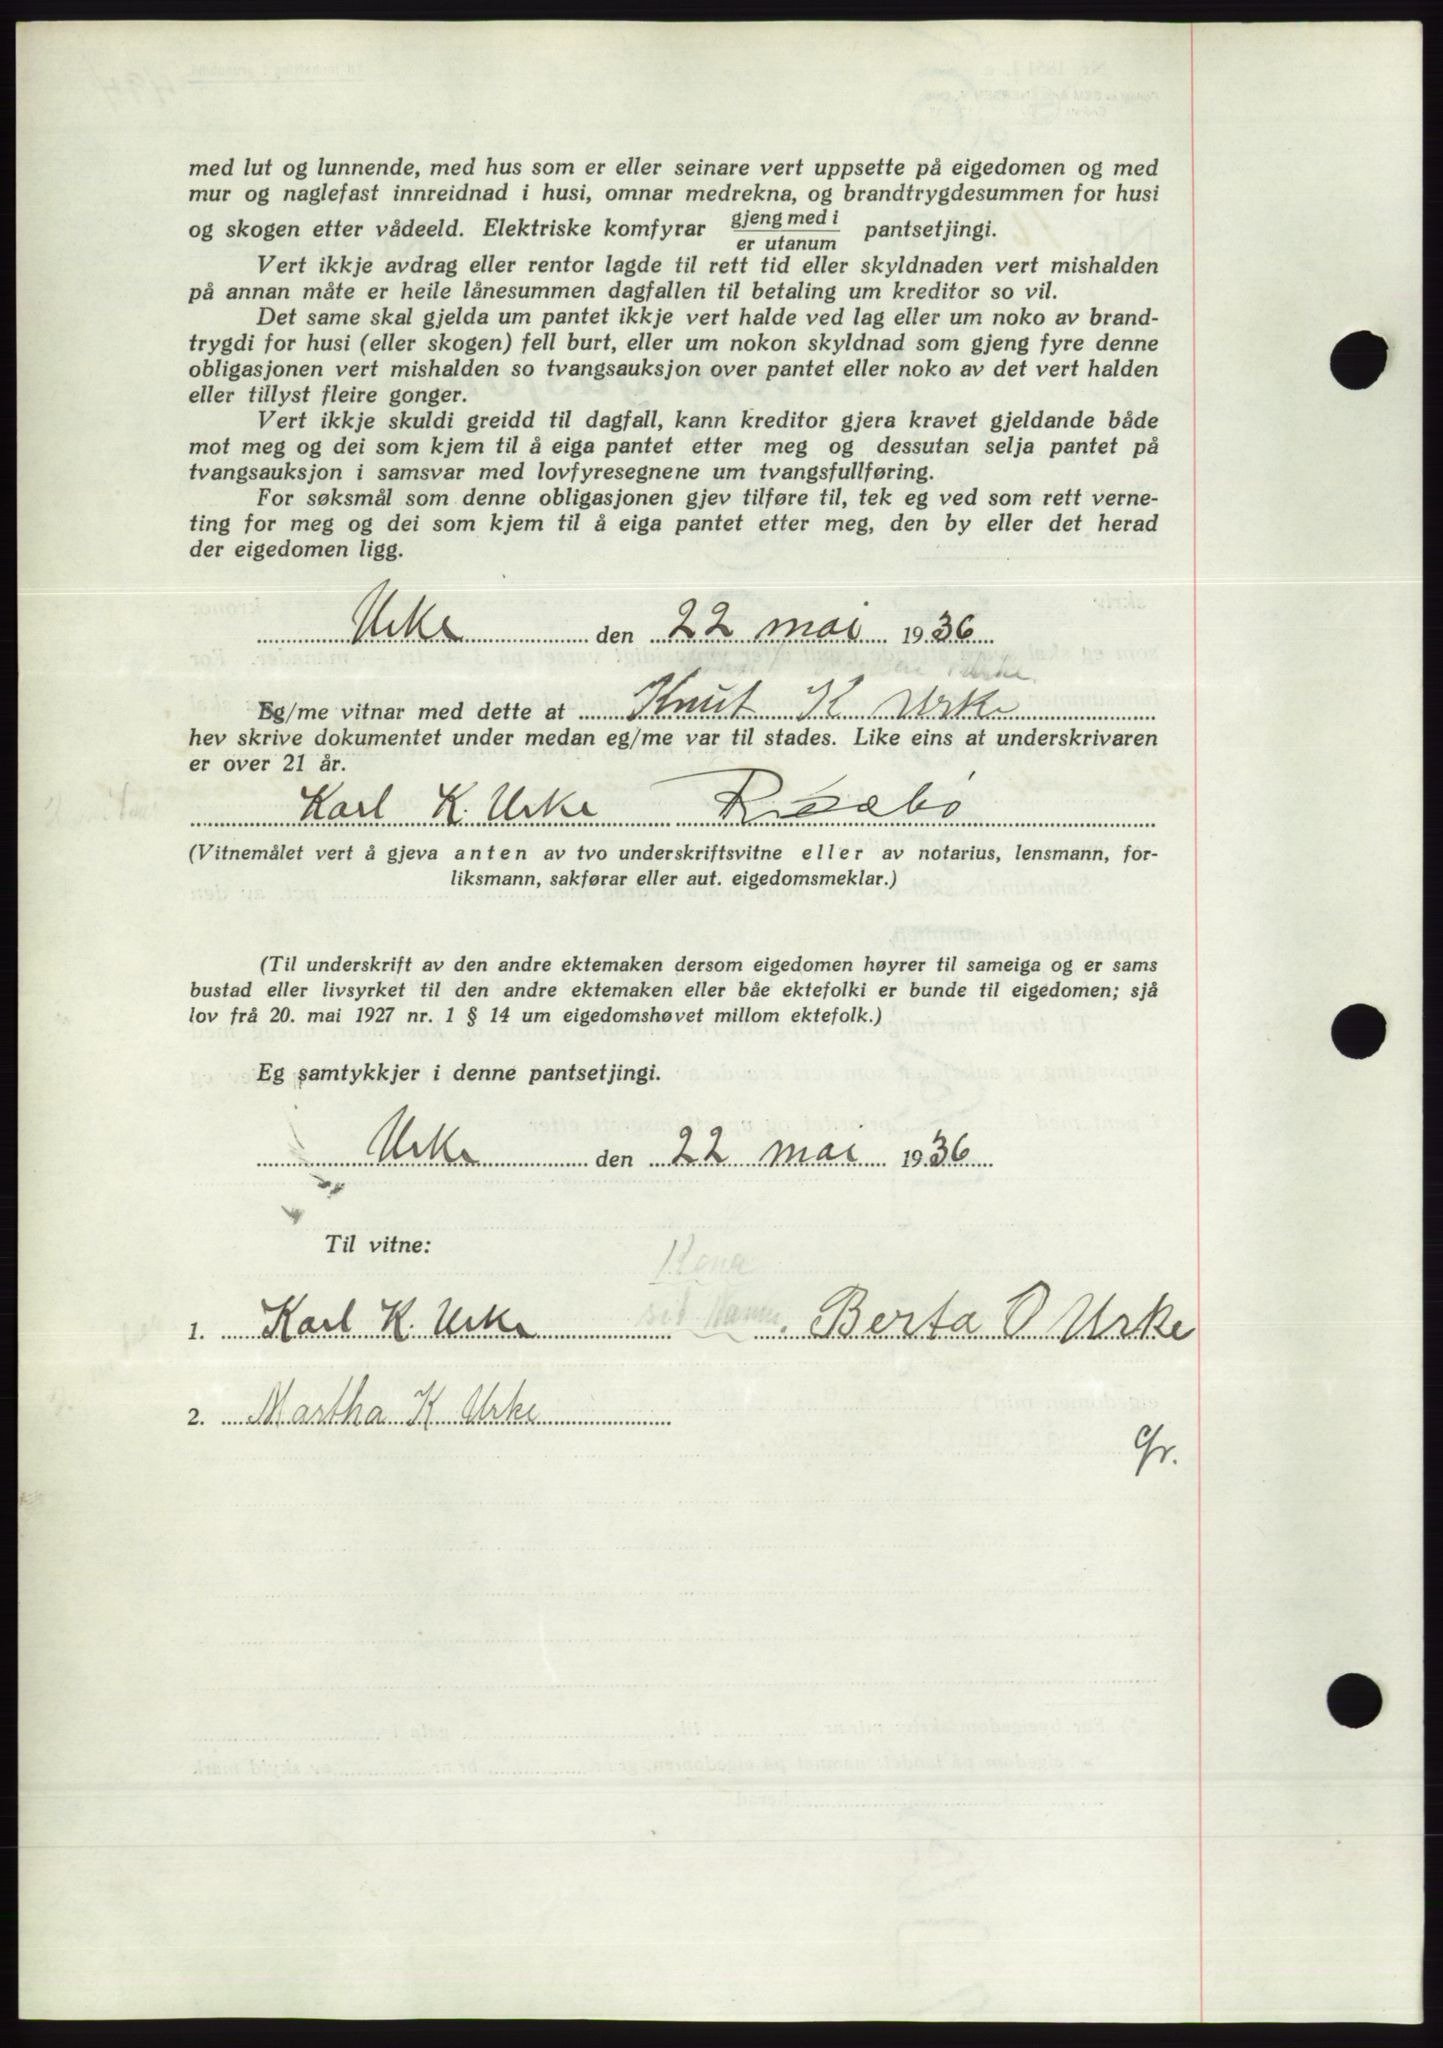 med lut og lunnende, med hus som er eller seinare vert uppsette på eigedomen og med
mur og naglefast innreidnad i husi, omnar medrekna, og brandtrygdesummen for husi
og skogen etter vådeeld. Elektriske komfyrar gjeng med i / er utanum pantsetjingi.
Vert ikkje avdrag eller rentor lagde til rett tid eller skyldnaden vert mishalden
på annan måte er heile lånesummen dagfallen til betaling um kreditor so vil.
Det same skal gjelda um pantet ikkje vert halde ved lag eller um noko av brand-
trygdi for husi (eller skogen) fell burt, eller um nokon skyldnad som gjeng fyre denne
obligasjonen vert mishalden so tvangsauksjon over pantet eller noko av det vert halden
eller tillyst fleire gonger.
Vert ikkje skuldi greidd til dagfall, kann kreditor gjera kravet gjeldande både
mot meg og dei som kjem til å eiga pantet etter meg og dessutan selja pantet på
tvangsauksjon i samsvar med lovfyresegnene um tvangsfullføring.
For søksmål som denne obligasjonen gjev tilføre til, tek eg ved som rett verne-
ting for meg og dei som kjem til å eiga pantet etter meg, den by eller det herad
der eigedomen ligg.
Urke den 22 mai 1936
Eg/me vitnar med dette at Knut K Urke
hev skrive dokumentet under medan eg/me var til stades. Like eins at underskrivaren
er over 21 år.
Karl K. Urke
(Vitnemålet vert å gjeva anten av tvo underskriftsvitne eller av notarius, lensmann, for-
liksmann, sakførar eller aut. eigedomsmeklar.)
(Til underskrift av den andre ektemaken dersom eigedomen høyrer til sameiga og er sams
bustad eller livsyrket til den andre ektemaken eller båe ektefolki er bunde til eigedomen; sjå
lov frå 20. mai 1927 nr. 1 § 14 um eigedomshøvet millom ektefolk.)
Eg samtykkjer i denne pantsetjingi.
Urke den 22 mai 1936
Til vitne:
Kona
1. Karl K. Urke Berta O Urke
2. Martha K Urke